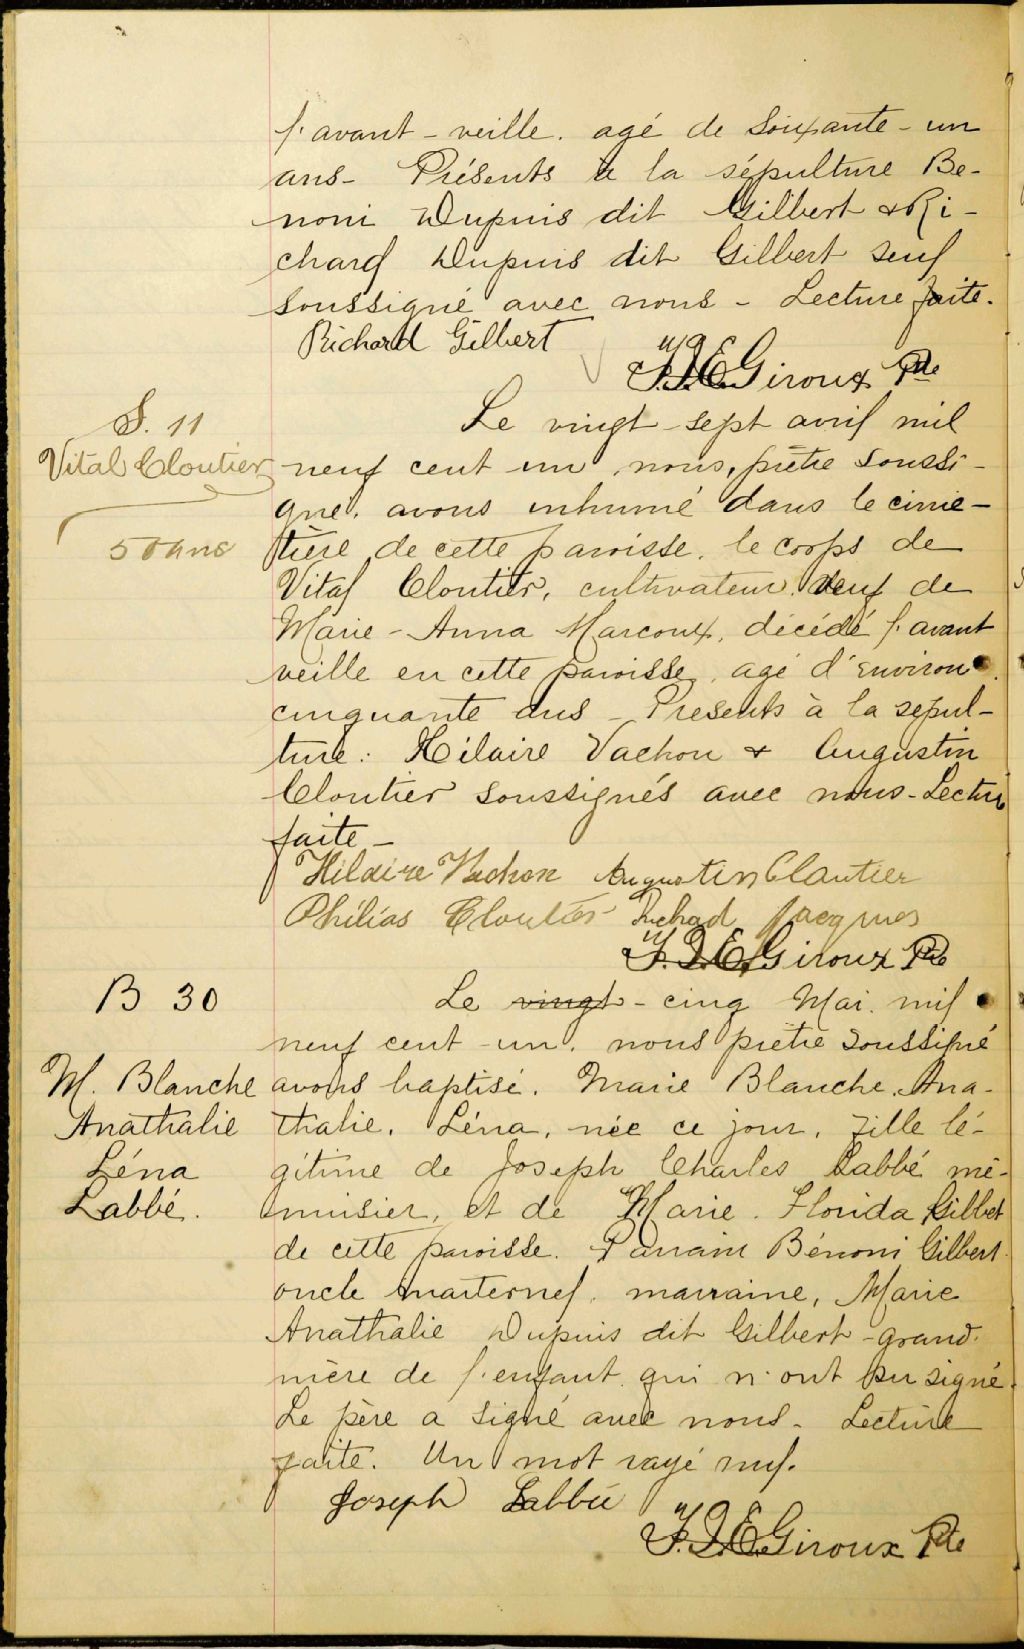 l'avant-veille. agé de Soixante-un
ans- Présents à la sépulture Be-
noni Dupuis dit Gilbert & Ri-
chard Dupuis dit Gilbert seul
soussigné avec nous - Lecture faite.
Richard Gilbert
Giroux Ptre
S. 11
Vital Cloutier
50 ans
Le vingt-sept avril mil
neuf cent un, nous, prêtre soussi-
gné, avons inhumé dans le cime-
tière de cette paroisse, le corps de
Vital Cloutier, cultivateur, veuf de
Marie-Anna Marcoux, décédé l'avant
veille en cette paroisse, agé d'environ
cinquante ans - Presents à la sépul-
ture: Hilaire Vachon & Augustin
Cloutier soussignés avec nous-Lecture
faite-
Hilaire Vachon Augustin Cloutier
Philias Cloutier Richad Jacques
Giroux Ptre
B 30
M. Blanche
Anathalie
Léna
Labbé.
Le vingt-cinq Mai. mil
neuf cent-un. nous prêtre soussigné
avons baptisé. Marie Blanche. Ana-
thalie. Léna, née ce jour, fille lé-
gitime de Joseph Charles Labbé me-
nuisier, et de Marie. Florida Gilbert
de cette paroisse. Parrain Bénoni Gilbert
oncle maternel, marraine, Marie
Anathalie Dupuis dit Gilbert-grand-
mère de l'enfant qui n'ont su signé.
Le père a signé avec nous- Lecture
faite. Un mot rayé nul.
Joseph Labbé
Giroux Ptre